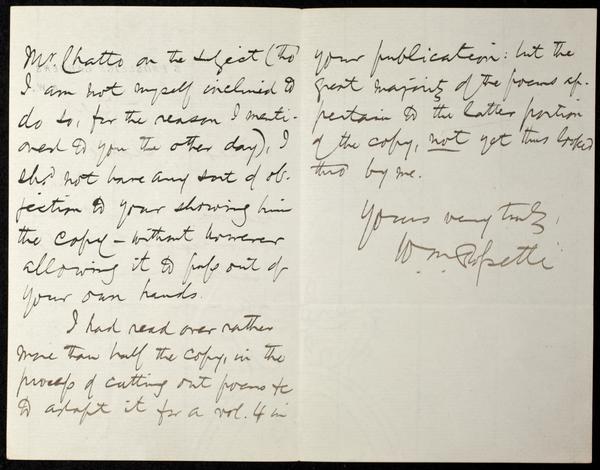 Mr. Chatto on the subject (tho'
I am not myself inclined to
do so, for the reason I menti-
oned to you the other day), I
shd. not have any sort of ob-
jection to your showing him
the copy – without however
allowing it to pass out of
your own hands.
I had read over rather
more than half the copy, in the
process of cutting out poems &c
to adapt it for a vol. 4 in
your publication: but the
great majority of the poems ap-
pertain to the latter portion
of the copy, not yet thus looked
thro' by me.
Yours very truly,
W. M. Rossetti